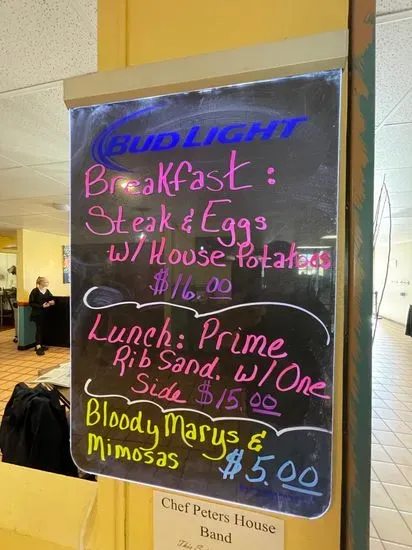 BUD LIGHT
Breakfast:
Steak & Eggs
w/ House Potatoes
$16.00
Lunch: Prime
Rib Sand. w/ One
Side $15.00
Bloody Marys &
Mimosas $5.00
Chef Peters House
Band